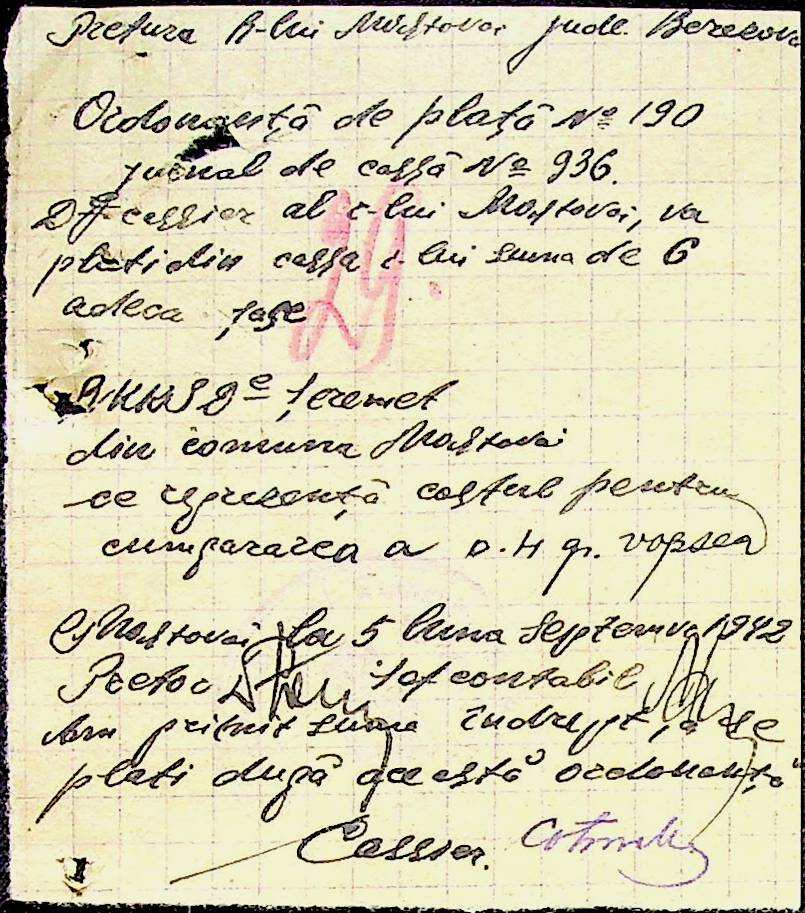 Pretura R-lui Mostovoi jude. Berezov
Ordonanță de plață № 190
jurnal de cassă № 936.
Dl cassier al r-lui Mostovoi, va
plati din cassa r-lui suma de 6
adeca șase
29.
din comuna Mostovoi
ce represență costul pentru
cumpararea a 0.4 gr. vopsea
Mostovoi la 5 luna Septemvr 1942
Pretor șef contabil
Am primit suma îndrept, a se
plati după această ordonanță
Cassier.
1